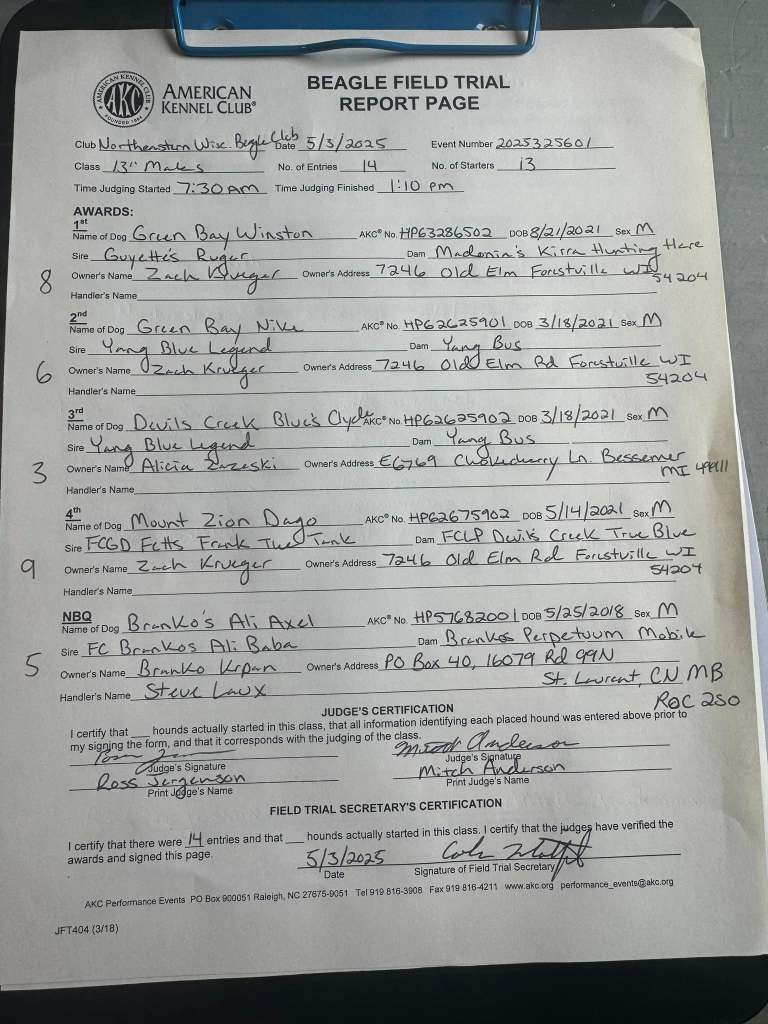 AMERICAN KENNEL CLUB FOUNDED 1884 AKC
AMERICAN
KENNEL CLUB®
BEAGLE FIELD TRIAL
REPORT PAGE
Club Northeastern Wisc. Beagle Club Date 5/3/2025 Event Number 2025325601
Class 13" Males No. of Entries 14 No. of Starters 13
Time Judging Started 7:30 AM Time Judging Finished 1:10 pm
AWARDS:
1st
Name of Dog Green Bay Winston AKC® No. HP63286502 DOB 8/21/2021 Sex M
Sire Guyette's Ruger Dam Madonia's Kirra Hunting Hare
8 Owner's Name Zach Krueger Owner's Address 7246 Old Elm Forestville WI
54204
Handler's Name
2nd
Name of Dog Green Bay Nike AKC® No. HP62625901 DOB 3/18/2021 Sex M
Sire Yang Blue Legend Dam Yang Bus
6 Owner's Name Zach Krueger Owner's Address 7246 Old Elm Rd Forestville WI
54204
Handler's Name
3rd
Name of Dog Devils Creek Blue's Clyde AKC® No. HP62625902 DOB 3/18/2021 Sex M
Sire Yang Blue Legend Dam Yang Bus
3 Owner's Name Alicia Owner's Address E6769 Chokecherry Ln. Bessemer
MI 49911
Handler's Name
4th
Name of Dog Mount Zion Dago AKC® No. HP62675902 DOB 5/14/2021 Sex M
Sire FCGD Fetts Frank The Tank Dam FCLP Devils Creek True Blue
9 Owner's Name Zach Krueger Owner's Address 7246 Old Elm Rd Forestville WI
54204
Handler's Name
NBQ
Name of Dog Branko's Ali Axel AKC® No. HP57682001 DOB 5/25/2018 Sex M
Sire FC Brankos Ali Baba Dam Brankos Perpetuum Mobile
5 Owner's Name Branko Krpan Owner's Address PO Box 40, 16079 Rd 99N
St. Laurent, CN MB
Handler's Name Steve Laux
R0C 2S0
JUDGE'S CERTIFICATION
I certify that ___ hounds actually started in this class, that all information identifying each placed hound was entered above prior to
my signing the form, and that it corresponds with the judging of the class.
Mitch Anderson
Judge's Signature Judge's Signature
Ross Jorgenson Mitch Anderson
Print Judge's Name Print Judge's Name
FIELD TRIAL SECRETARY'S CERTIFICATION
I certify that there were 14 entries and that ___ hounds actually started in this class. I certify that the judges have verified the
awards and signed this page.
5/3/2025
Date Signature of Field Trial Secretary
AKC Performance Events PO Box 900051 Raleigh, NC 27675-9051 Tel 919 816-3908 Fax 919 816-4211 www.akc.org performance_events@akc.org
JFT404 (3/18)